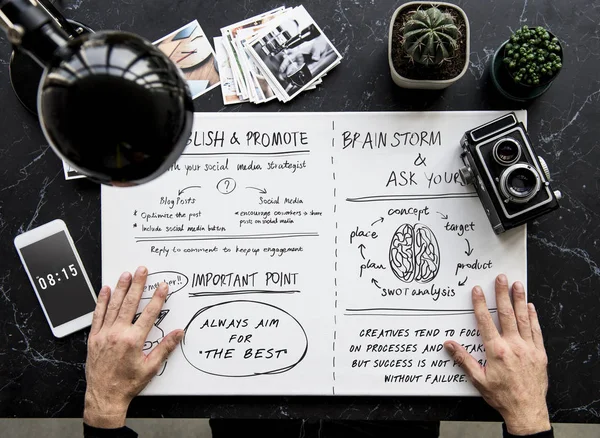 BLISH & PROMOTE
your social media strategist
?
Blog Posts
Social Media
* Optimize the post
* Include social media button
* encourage coworkers to share
posts on social media
Reply to comment to keep up engagement
IMPORTANT POINT
ALWAYS AIM
FOR
"THE BEST"
BRAINSTORM
&
ASK YOUR
concept
target
product
SWOT analysis
plan
place
CREATIVES TEND TO FOCU
ON PROCESSES AND
BUT SUCCESS IS NOT
WITHOUT FAILURE.
08:15